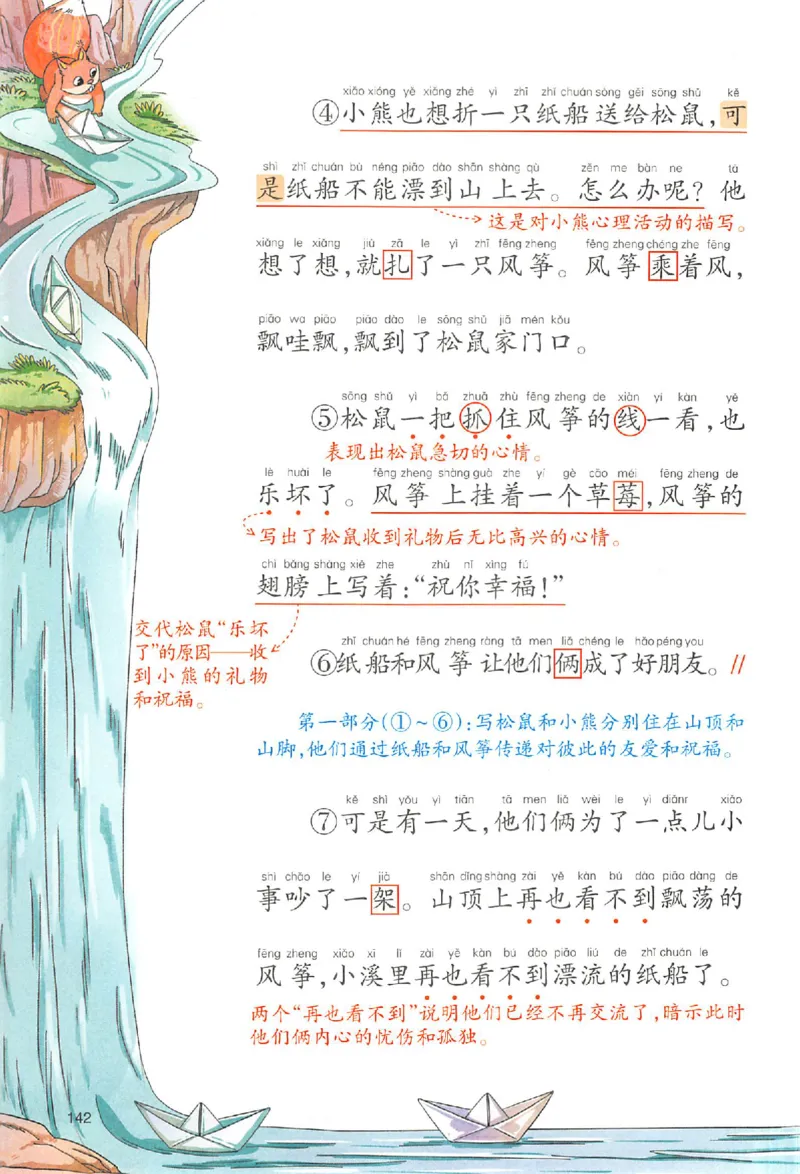 xiǎo xióng yě xiǎng zhé yì zhī zhǐ chuán sòng gěi sōng shǔ kě
④小熊也想折一只纸船送给松鼠,可
shì zhǐ chuán bù néng piāo dào shān shàng qù zěn me bàn ne tā
是纸船不能漂到山上去。怎么办呢?他
这是对小熊心理活动的描写。
xiǎng le xiǎng jiù zā le yì zhī fēng zheng fēng zheng chéng zhe fēng
想了想,就扎了一只风筝。风筝乘着风,
piāo wa piāo piāo dào le sōng shǔ jiā mén kǒu
飘哇飘,飘到了松鼠家门口。
sōng shǔ yì bǎ zhuā zhù fēng zheng de xiàn yí kàn yě
⑤松鼠一把抓住风筝的线一看,也
表现出松鼠急切的心情。
lè huài le fēng zheng shàng guà zhe yí gè cǎo méi fēng zheng de
乐坏了。风筝上挂着一个草莓,风筝的
写出了松鼠收到礼物后无比高兴的心情。
chì bǎng shàng xiě zhe zhù nǐ xìng fú
翅膀上写着:“祝你幸福!”
交代松鼠“乐坏
了”的原因——收
到小熊的礼物
和祝福。
zhǐ chuán hé fēng zheng ràng tā men liǎ chéng le hǎo péng you
⑥纸船和风筝让他们俩成了好朋友。//
第一部分(①~⑥):写松鼠和小熊分别住在山顶和
山脚,他们通过纸船和风筝传递对彼此的友爱和祝福。
kě shì yǒu yì tiān tā men liǎ wèi le yì diǎnr xiǎo
⑦可是有一天,他们俩为了一点儿小
shì chǎo le yí jià shān dǐng shàng zài yě kàn bú dào piāo dàng de
事吵了一架。山顶上再也看不到飘荡的
fēng zheng xiǎo xī lǐ zài yě kàn bú dào piāo liú de zhǐ chuán le
风筝,小溪里再也看不到漂流的纸船了。
两个“再也看不到”说明他们已经不再交流了,暗示此时
他们俩内心的忧伤和孤独。
142